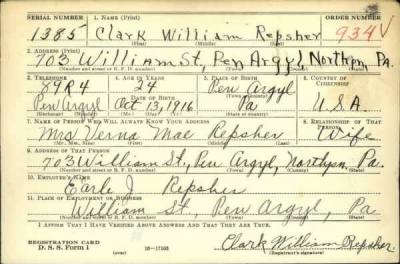 SERIAL NUMBER 1. NAME (Print) ORDER NUMBER
1385 Clark William Repsher 934V
(First) (Middle) (Last)
2. ADDRESS (Print)
703 William St, Pen Argyl, Northpn, Pa.
(Number and street or R. F. D. number) (Town) (County) (State)
3. TELEPHONE 4. AGE IN YEARS 5. PLACE OF BIRTH 6. COUNTRY OF CITIZENSHIP
84R4 24 Pen Argyl
DATE OF BIRTH (Town or county)
Pen Argyl Oct 13, 1916 Pa U.S.A.
(Exchange) (Number) (Mo.) (Day) (Yr.) (State or country)
7. NAME OF PERSON WHO WILL ALWAYS KNOW YOUR ADDRESS 8. RELATIONSHIP OF THAT PERSON
Mrs Verna Mae Repsher Wife
(Mr., Mrs., Miss) (First) (Middle) (Last)
9. ADDRESS OF THAT PERSON
703 William St., Pen Argyl, Northpn, Pa.
(Number and street or R. F. D. number) (Town) (County) (State)
10. EMPLOYER'S NAME
Earle J Repsher
11. PLACE OF EMPLOYMENT OR BUSINESS
William St, Pen Argyl, Pa
(Number and street or R. F. D. number) (Town) (County) (State)
I AFFIRM THAT I HAVE VERIFIED ABOVE ANSWERS AND THAT THEY ARE TRUE.
REGISTRATION CARD
D. S. S. Form 1 (over) 16—17105 Clark William Repsher.